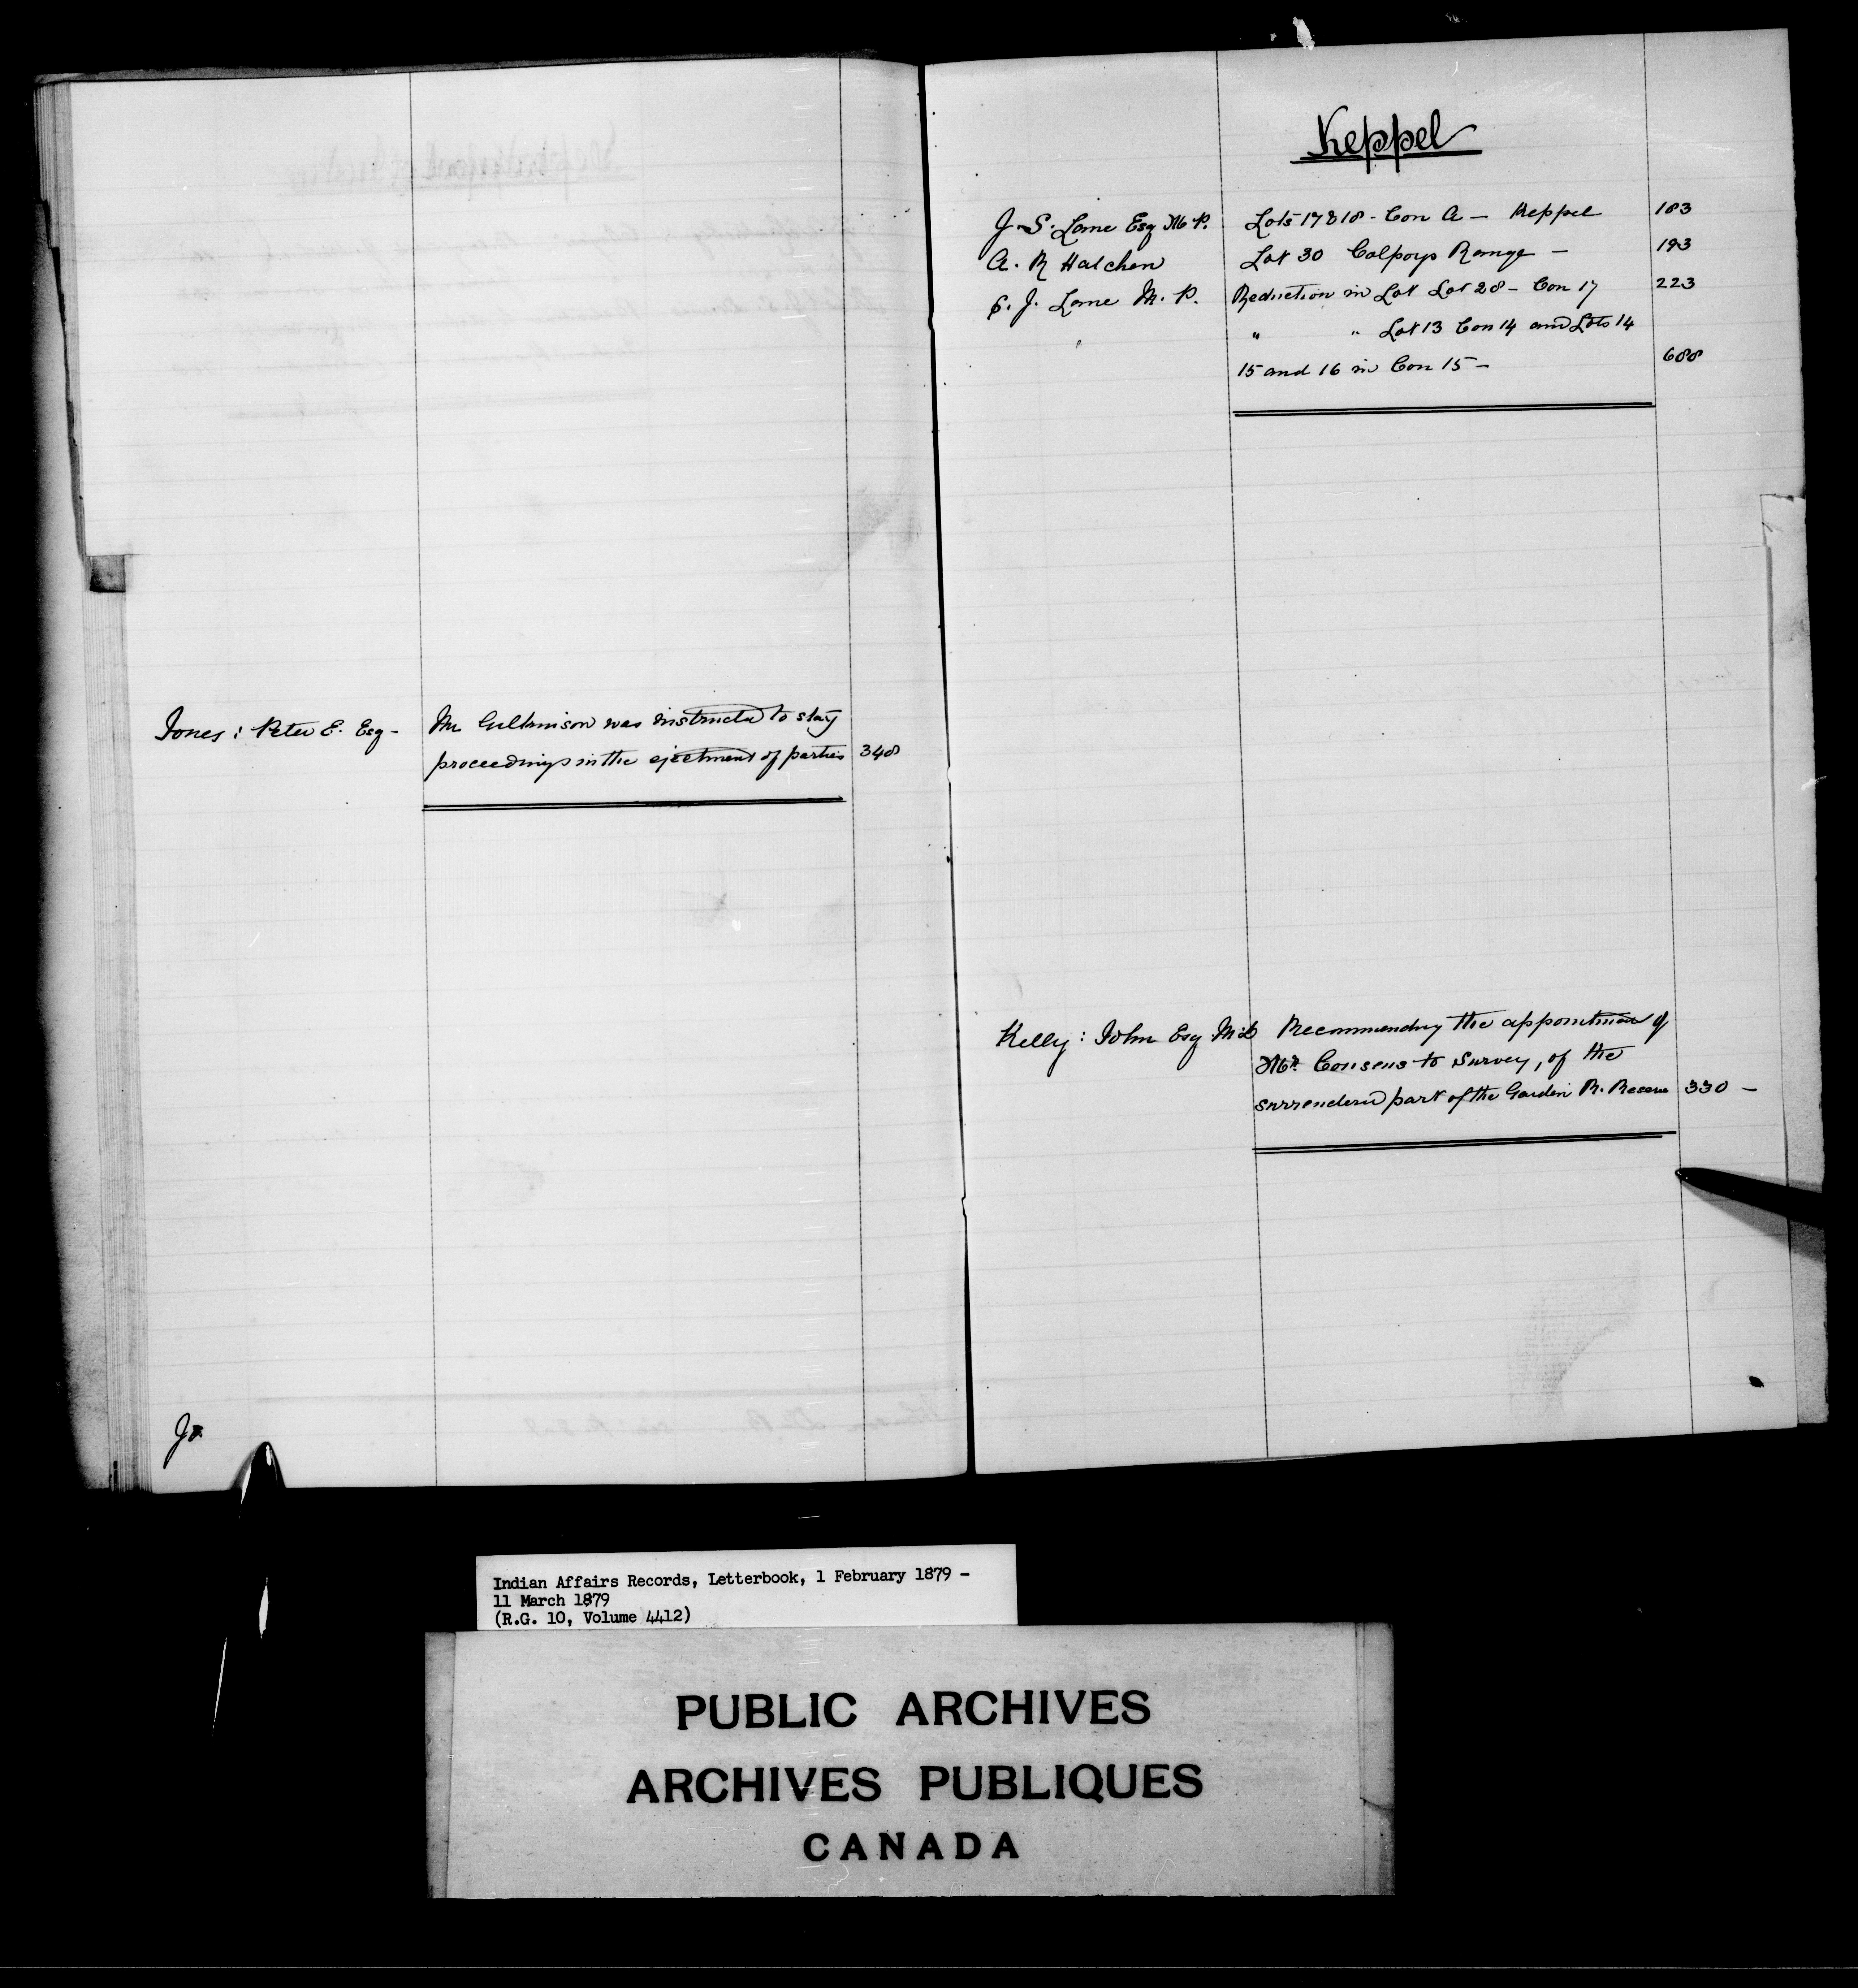 Jones : Peter E. Esq - Mr Gilkinson was instructed to stay
proceedings in the ejectment of parties 348
Jo.
Keppel
J. S. Lane Esq M. P. Lots 17 & 18 - Con A - Keppel 183
A. R Hatchen Lot 30 Colpoys Range - 193
S. J. Lane M. P. Reduction in Lot Lot 28 - Con 17 223
" " Lot 13 Con 14 and Lots 14
15 and 16 in Con 15 - 688
Kelly : John Esq Recommending the appointment of
Mr. Cousens to Survey, of the
surrendered part of the Garden R. Reserve 330 -
Indian Affairs Records, Letterbook, 1 February 1879 -
11 March 1879
(R.G. 10, Volume 4412)
PUBLIC ARCHIVES
ARCHIVES PUBLIQUES
CANADA